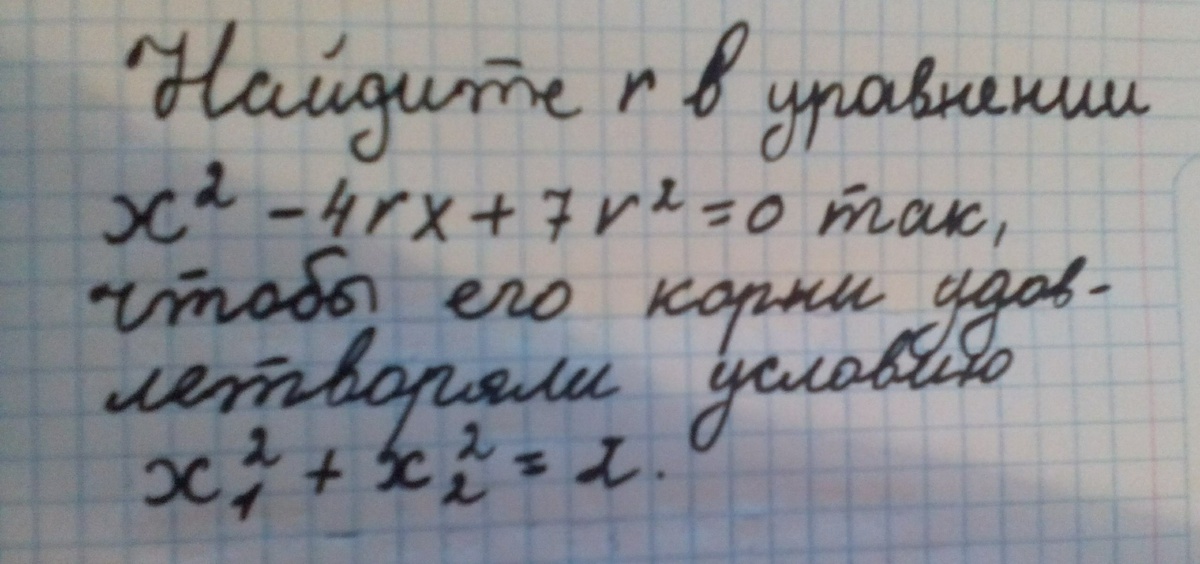 Найдите r в уравнении
x² - 4rx + 7r² = 0 так,
чтобы его корни удов-
летворяли условию
x₁² + x₂² = 2.